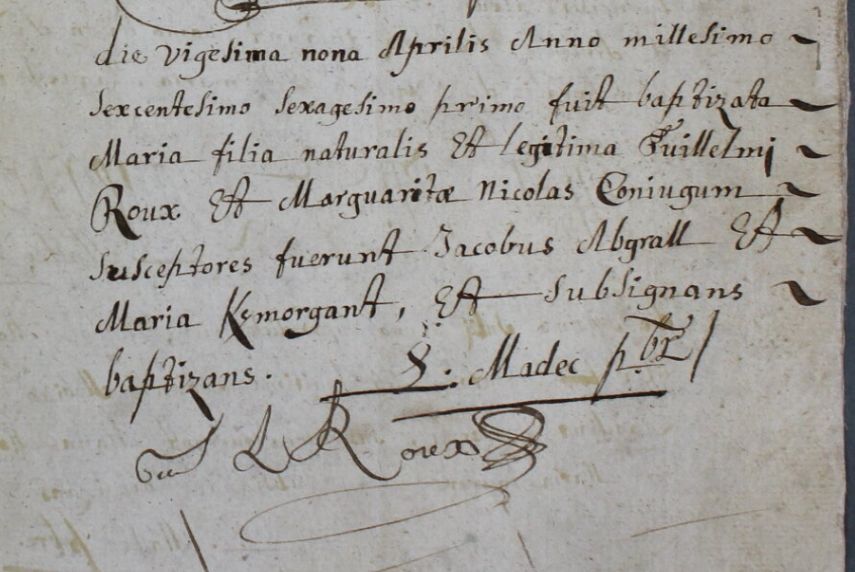 die vigesima nona Aprilis Anno millesimo
sexcentesimo sexagesimo primo fuit baptizata
Maria filia naturalis Et legitima Guillelmi
Roux Et Marguaritæ Nicolas Coniugum
susceptores fuerunt Jacobus Abgrall Et
Maria Kmorgant, Et subsignans
baptizans. Madec pbr
Roux